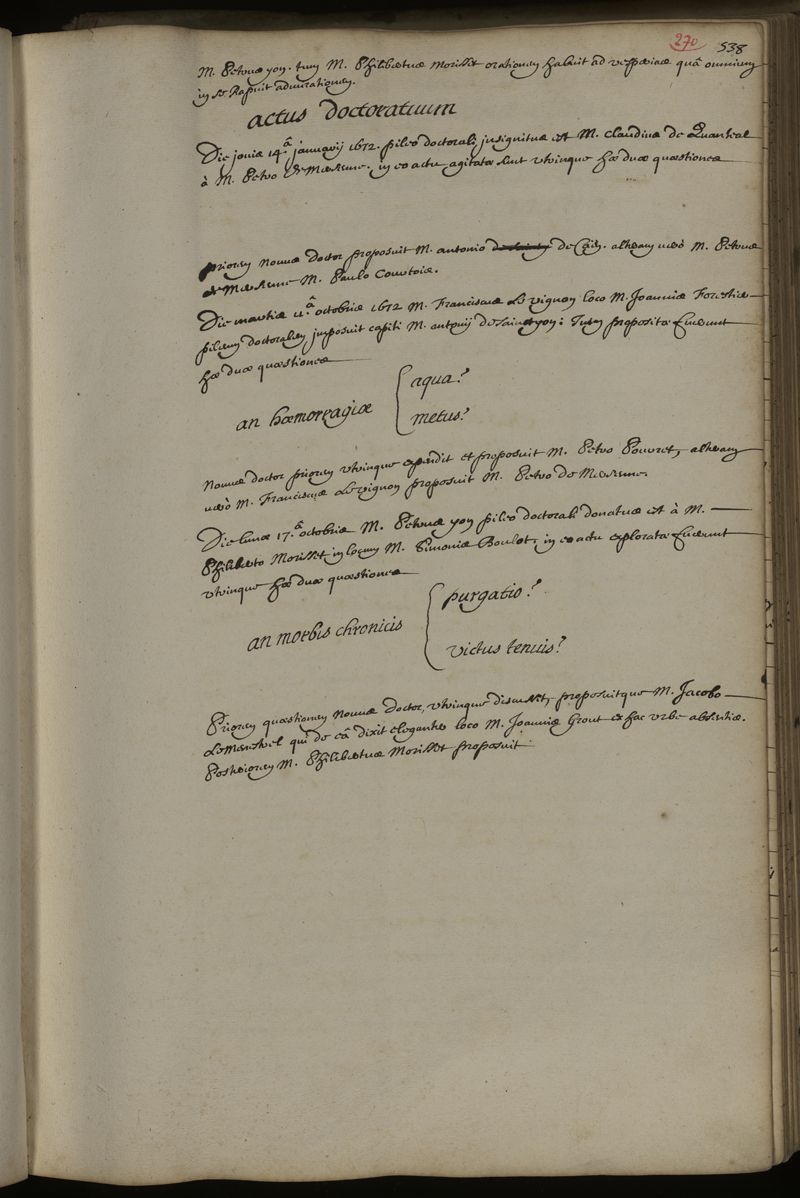 270 538
M. Petrus yon. tum M. Philibertus Morisset orationem habuit ad vesperias quâ omnium
in se Rapuit admirationem.
actus doctoratuum
Die jovis 14.â januarij 1672. pileo doctorali insignitus est M. claudius de Quanteal
à M. Petro de Mersenne. in eo actu agitatæ sunt utrinque hæ duæ quæstiones
priorem novus doctor proposuit M. antonio de Caën. alteram verò M. Petrus
de Mersenne M. Paulo Courtois.
Die martis 11.â octobris 1672 M. Franciscus Le vignon loco M. Joannis Forestier
pileum doctoralem imposuit capiti M. antonij de Sainctyon: Tum propositæ fuerunt
hæ duæ quæstiones
an hæmorragiæ { aqua?
metus?
Novus doctor priorem utrinque expendit et proposuit M. Petro Pourret, alteram
verò M. Franciscus Le vignon proposuit M. Petro de Mersenne.
Die lunæ 17.â octobris M. Petrus yon pileo doctorali donatus est à M.
Philiberto Morisset in locum M. Simonis Boulot, in eo actu exploratæ fuerunt
utrinque hæ duæ quæstiones
an morbis chronicis { purgatio?
victus tenuis?
Priorem quæstionem Novus Doctor, utrinque discussit, proposuitque M. Jacobo
qui de eâ dixit eleganter loco M. Joannis Grout ex hac urbe absentis.
Posteriorem M. Philibertus Morisset proposuit